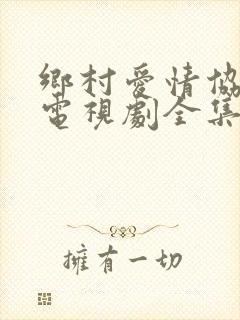 鄉村愛情協
電視劇全集
擁有一切